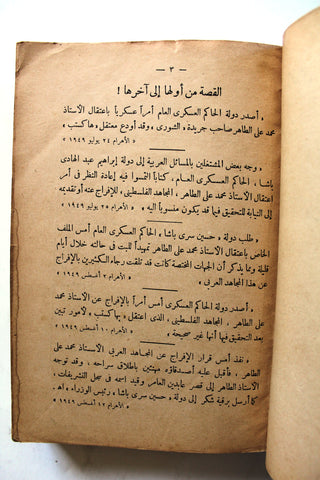 — ٣ —
القصة من أولها إلى آخرها !
، أصدر دولة الحاكم العسكرى العام أمراً عسكرياً باعتقال الأستاذ
محمد على الطاهر صاحب جريدة « الشورى » وقد أودع معتقل « هاكستب »
« الأهرام ٢٤ يوليو ١٩٤٩ »
، وجه بعض المشتغلين بالمسائل العربية إلى دولة إبراهيم عبد الهادى
باشا ، الحاكم العسكرى العام ، كتاباً التمسوا فيه إعادة النظر فى أمر
اعتقال الأستاذ محمد على الطاهر ، المجاهد الفلسطينى ، للإفراج عنه أو تقديمه
إلى النيابة للتحقيق فيما قد يكون منسوباً اليه
« الأهرام ٢٥ يوليو ١٩٤٩ »
، طلب دولة « حسين سرى باشا » الحاكم العسكرى العام أمس الملف
الخاص باعتقال الأستاذ محمد على الطاهر تمهيداً للبت فى حالته خلال أيام
قليلة ومما يذكر أن الجهات المختصة كانت قد تلقت رجاء الكثيرين بالإفراج
عن هذا المجاهد العربى
« الأهرام ٢ أغسطس ١٩٤٩ »
، أصدر دولة الحاكم العسكرى أمس أمراً بالإفراج عن الأستاذ محمد
على الطاهر ، المجاهد الفلسطينى ، الذى اعتقل « بها كستب » لأمور تبين
بعد التحقيق فيها أنها غير صحيحة
« الأهرام ١٠ أغسطس ١٩٤٩ »
، نفذ أمس قرار الإفراج عن المجاهد العربى الأستاذ محمد على
الطاهر ، فأقبل عليه أصدقاؤه مهنئين باطلاق سراحه ، وقد توجه
الأستاذ الطاهر إلى قصر عابدين العامر وقيد اسمه فى سجل التشريفات ،
كما أرسل برقية شكر إلى دولة « حسين سرى باشا » رئيس الوزراء اهـ
« الأهرام ١٢ أغسطس ١٩٤٩ »